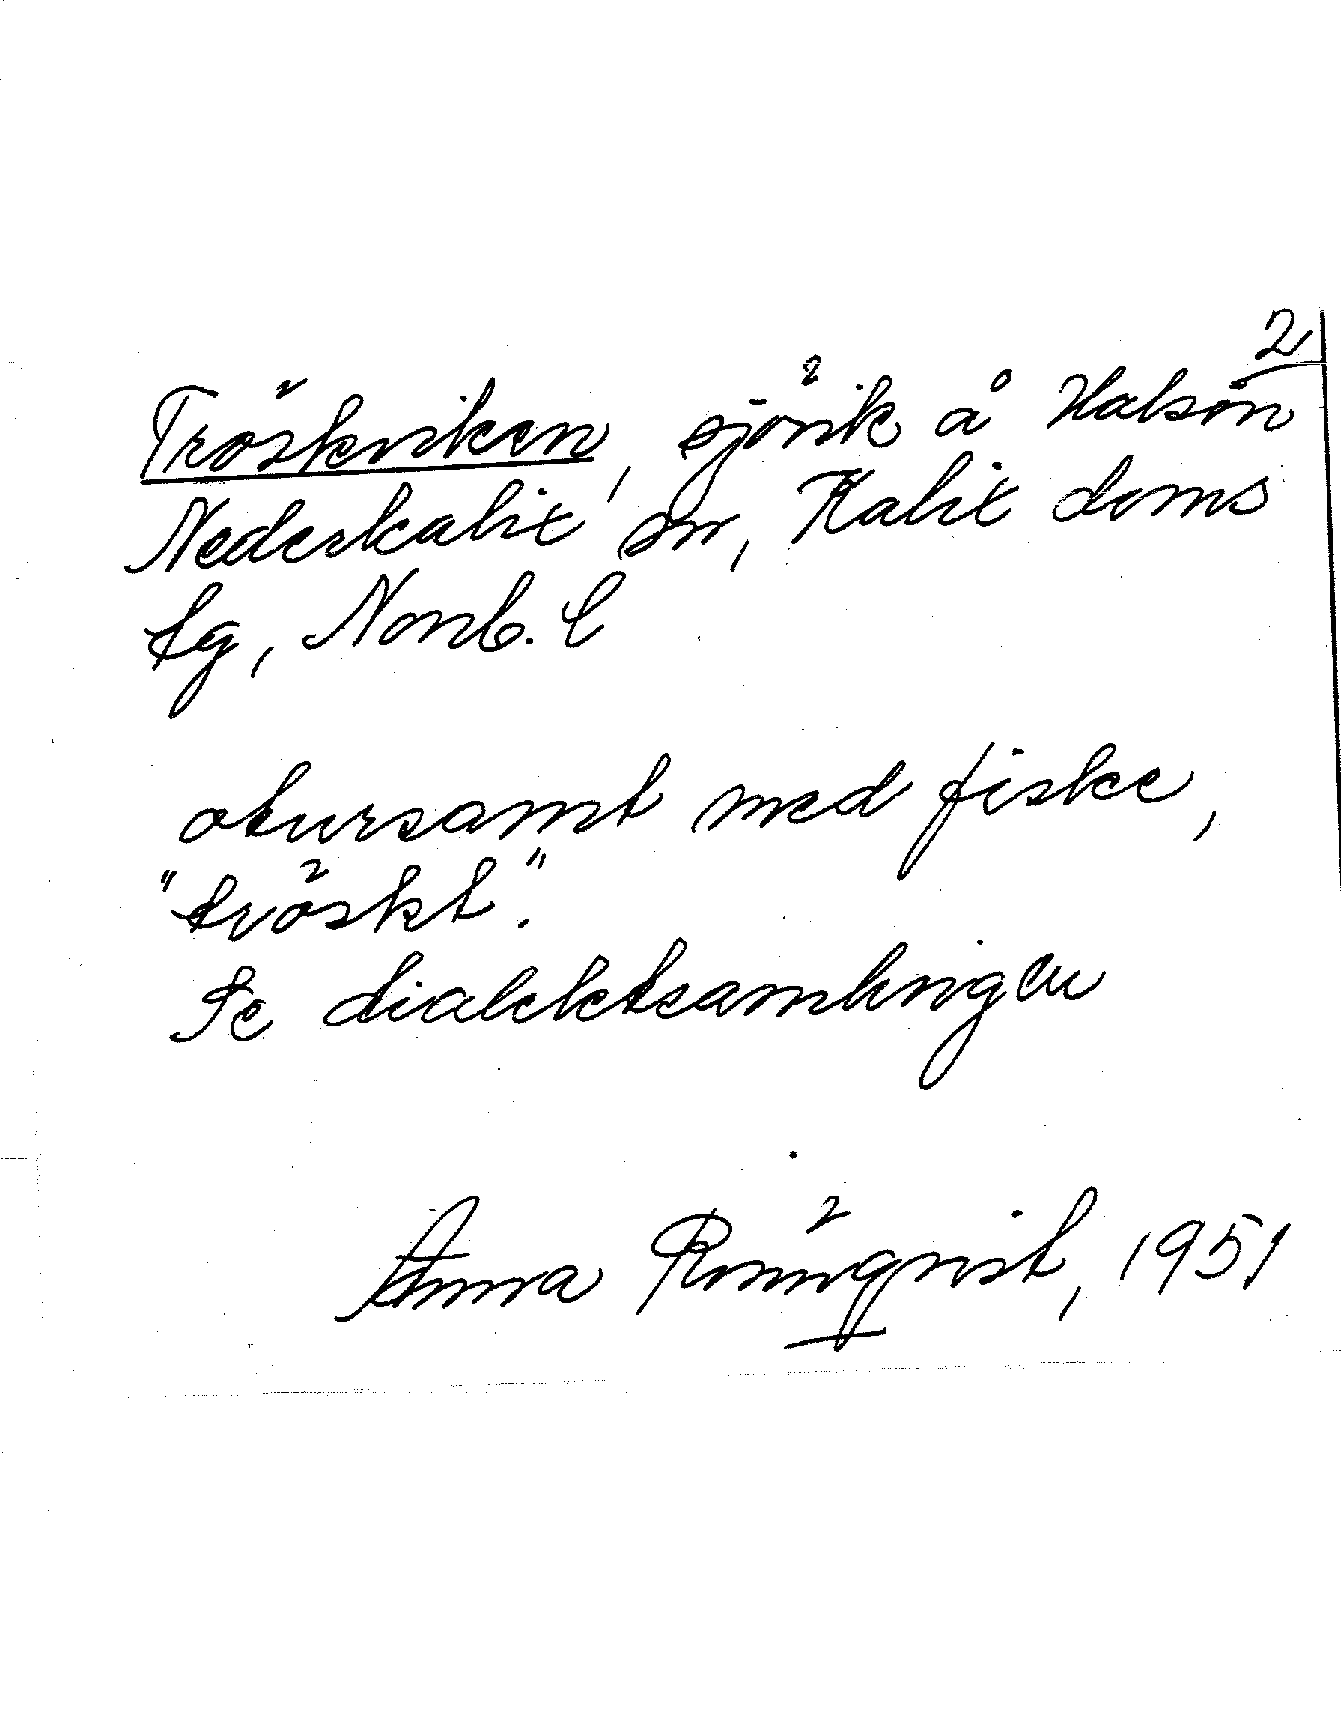 2
Tröskviken, sjövik å Halsön
Nederkalix sn, Kalix doms
tg, Nonb. l
otursamt med fiske,
"tröskt".
Se dialektsamlingen
Anna Rönnqvist, 1951